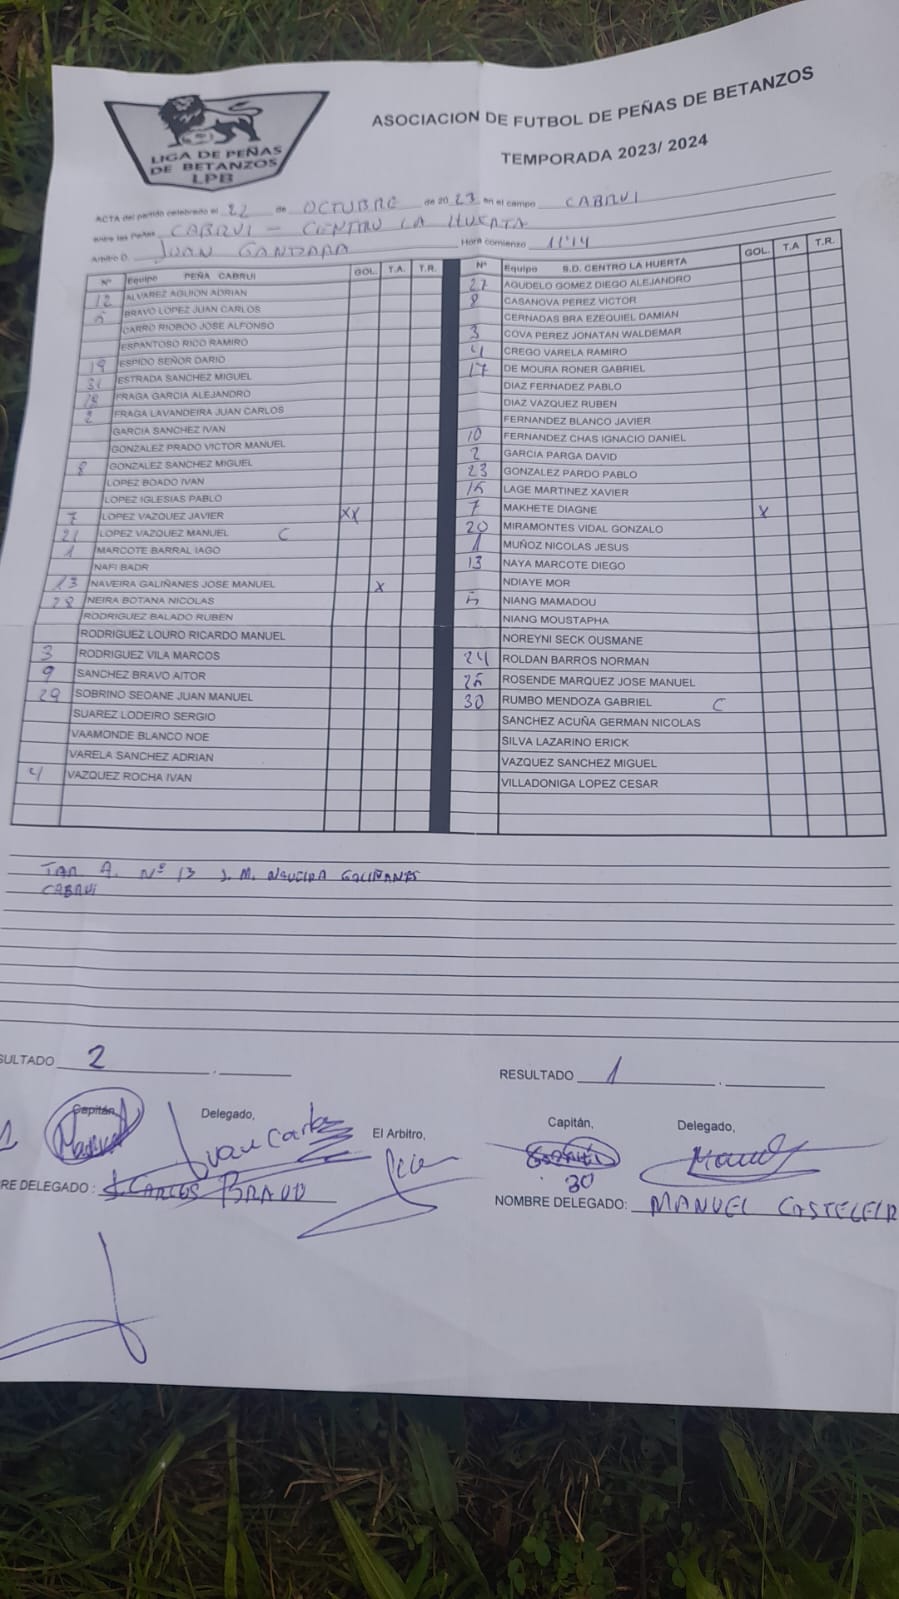 LIGA DE PEÑAS
DE BETANZOS
LPB
ASOCIACION DE FUTBOL DE PEÑAS DE BETANZOS
TEMPORADA 2023/ 2024
ACTA del partido celebrado el 22 de OCTUBRE de 2023 en el campo CABRUI
entre las Peñas CABRUI - CENTRO LA HUERTA
Arbitro D. JUAN GANDARA Hora comienzo 11'14
Nº Equipo PEÑA CABRUI GOL. T.A. T.R.
12 ALVAREZ AGUION ADRIAN
5 BRAVO LOPEZ JUAN CARLOS
CARRO RIOBOO JOSE ALFONSO
ESPANTOSO RICO RAMIRO
19 ESPIDO SEÑOR DARIO
31 ESTRADA SANCHEZ MIGUEL
18 FRAGA GARCIA ALEJANDRO
2 FRAGA LAVANDEIRA JUAN CARLOS
GARCIA SANCHEZ IVAN
GONZALEZ PRADO VICTOR MANUEL
8 GONZALEZ SANCHEZ MIGUEL
LOPEZ BOADO IVAN
LOPEZ IGLESIAS PABLO
7 LOPEZ VAZQUEZ JAVIER XX
21 LOPEZ VAZQUEZ MANUEL C
1 MARCOTE BARRAL IAGO
NAFI BADR
13 NAVEIRA GALIÑANES JOSE MANUEL X
28 NEIRA BOTANA NICOLAS
RODRIGUEZ BALADO RUBEN
RODRIGUEZ LOURO RICARDO MANUEL
3 RODRIGUEZ VILA MARCOS
9 SANCHEZ BRAVO AITOR
29 SOBRINO SEOANE JUAN MANUEL
SUAREZ LODEIRO SERGIO
VAAMONDE BLANCO NOE
VARELA SANCHEZ ADRIAN
4 VAZQUEZ ROCHA IVAN
Nº Equipo S.D. CENTRO LA HUERTA GOL. T.A T.R.
27 AGUDELO GOMEZ DIEGO ALEJANDRO
8 CASANOVA PEREZ VICTOR
CERNADAS BRA EZEQUIEL DAMIAN
3 COVA PEREZ JONATAN WALDEMAR
4 CREGO VARELA RAMIRO
17 DE MOURA RONER GABRIEL
DIAZ FERNADEZ PABLO
DIAZ VAZQUEZ RUBEN
FERNANDEZ BLANCO JAVIER
10 FERNANDEZ CHAS IGNACIO DANIEL
2 GARCIA PARGA DAVID
23 GONZALEZ PARDO PABLO
15 LAGE MARTINEZ XAVIER
7 MAKHETE DIAGNE X
20 MIRAMONTES VIDAL GONZALO
1 MUÑOZ NICOLAS JESUS
13 NAYA MARCOTE DIEGO
NDIAYE MOR
5 NIANG MAMADOU
NIANG MOUSTAPHA
NOREYNI SECK OUSMANE
24 ROLDAN BARROS NORMAN
25 ROSENDE MARQUEZ JOSE MANUEL
30 RUMBO MENDOZA GABRIEL C
SANCHEZ ACUÑA GERMAN NICOLAS
SILVA LAZARINO ERICK
VAZQUEZ SANCHEZ MIGUEL
VILLADONIGA LOPEZ CESAR
TAR A. Nº 13 J. M. NAVEIRA GALIÑANES
CABRUI
SULTADO 2
RESULTADO 1
Capitán, Delegado, El Arbitro,
Capitán, Delegado,
Juan Carlos
30
RE DELEGADO : J. CARLOS BRAVO
NOMBRE DELEGADO: MANUEL CASTELEIR